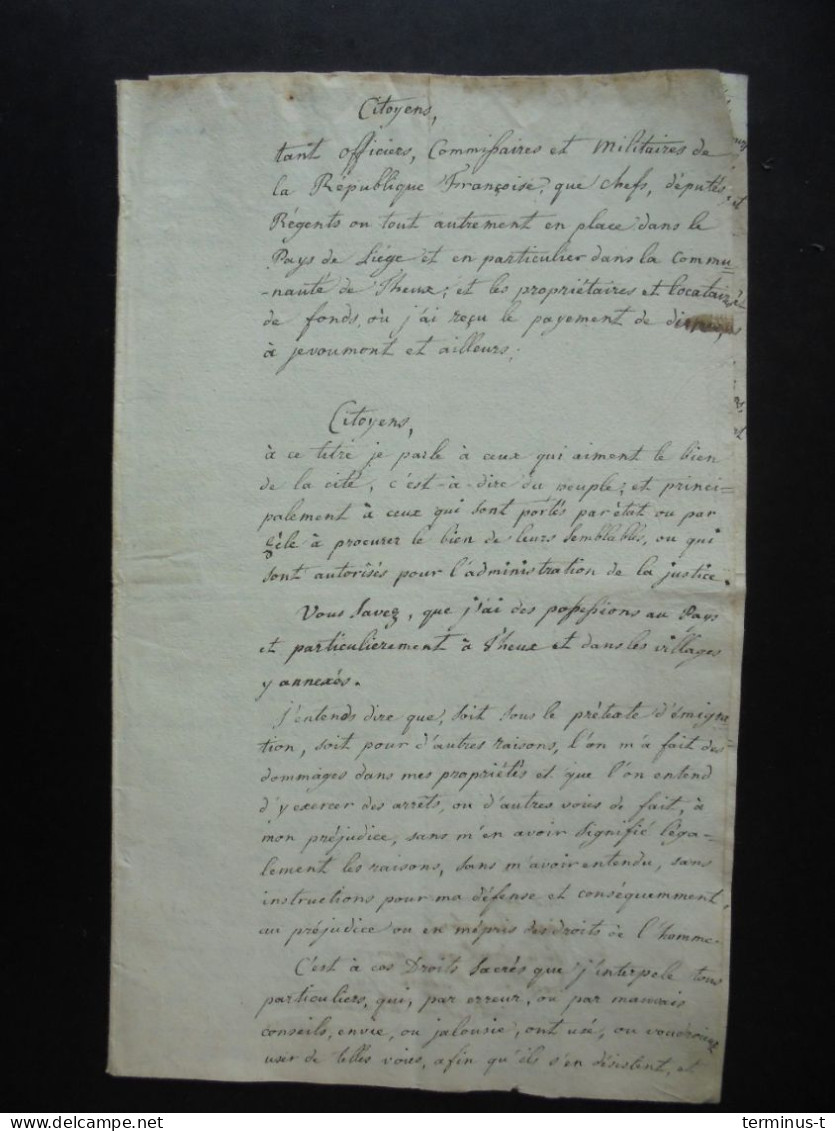 Citoyens,
tant officiers, Commissaires et militaires de
la République Françoise, que chefs, députés,
Régents ou tout autrement en place dans le
Pays de Liége et en particulier dans la Commu-
-nauté de Theux; et les propriétaires et locataires
de fonds, où j'ai reçu le payement de dismes,
à jevoumont et ailleurs;
Citoyens,
à ce titre je parle à ceux qui aiment le bien
de la cité, c'est-à-dire du peuple, et princi-
palement à ceux qui sont portés par état ou par
zèle à procurer le bien de leurs semblables, ou qui
sont autorisés pour l'administration de la justice.
Vous savez, que j'ai des possessions au Pays
et particulierement à Theux et dans les villages
y annexés.
j'entends dire que, soit sous le prétexte d'émigra-
tion, soit pour d'autres raisons, l'on m'a fait des
dommages dans mes propriétés et que l'on entend
d'y exercer des arrêts, ou d'autres voies de fait, à
mon préjudice, sans m'en avoir signifié léga-
lement les raisons, sans m'avoir entendu, sans
instructions pour ma défense et conséquemment,
au préjudice ou en mépris des droits de l'homme.
C'est à cos Droits sacrés que j'interpele tous
particuliers, qui, par erreur, ou par mauvais
conseils, envie, ou jalousie, ont usé, ou voudroient
user de telles voies, afin qu'ils s'en désistent, et
terminus-t